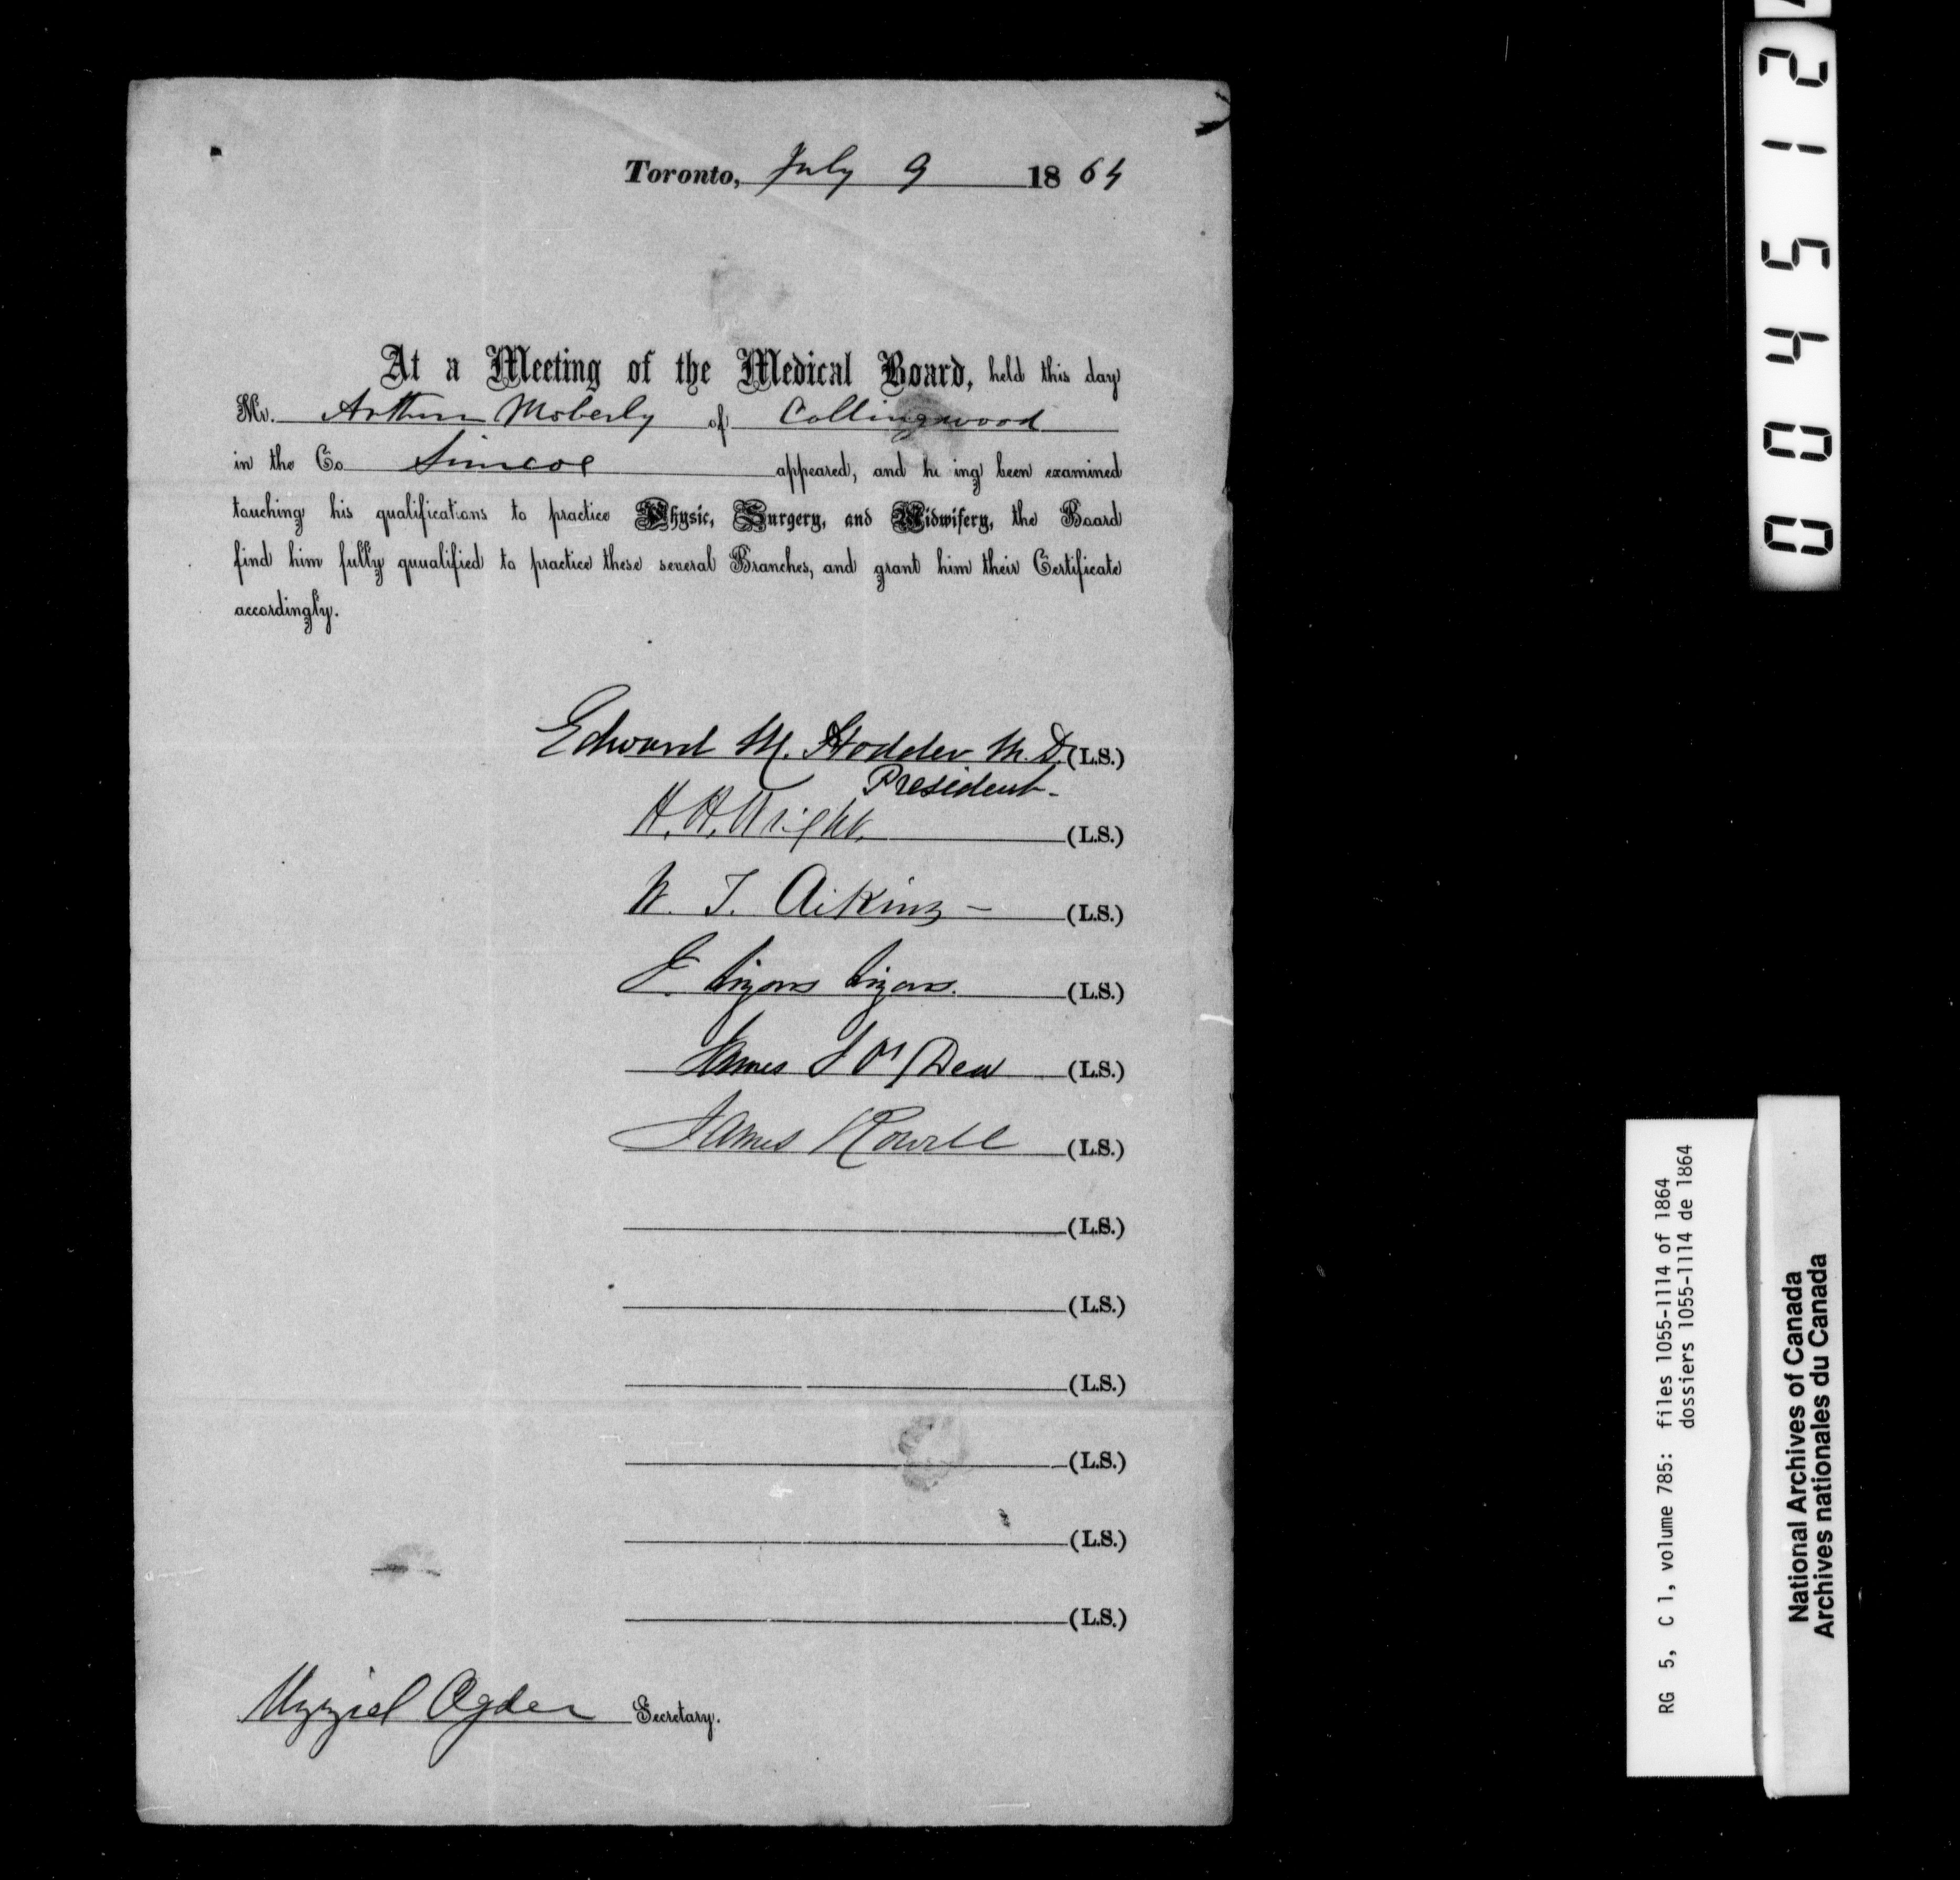 Toronto, July 9 1864
At a Meeting of the Medical Board, held this day
Mr. Arthur Moberly of Collingwood
in the Co Simcoe appeared, and he ing been examined
touching his qualifications to practice Physic, Surgery, and Midwifery, the Board
find him fully quualified to practice these several Branches, and grant him their Certificate
accordingly.
Edward M. Hodder M.D. (L.S.)
President-
H. H. Wright. (L.S.)
W. T. Aikins - (L.S.)
J. (L.S.)
James (L.S.)
James Rowell (L.S.)
(L.S.)
(L.S.)
(L.S.)
(L.S.)
(L.S.)
(L.S.)
Uzziel Ogden Secretary.
004512
RG 5, C 1, volume 785: files 1055-1114 of 1864
dossiers 1055-1114 de 1864
National Archives of Canada
Archives nationales du Canada